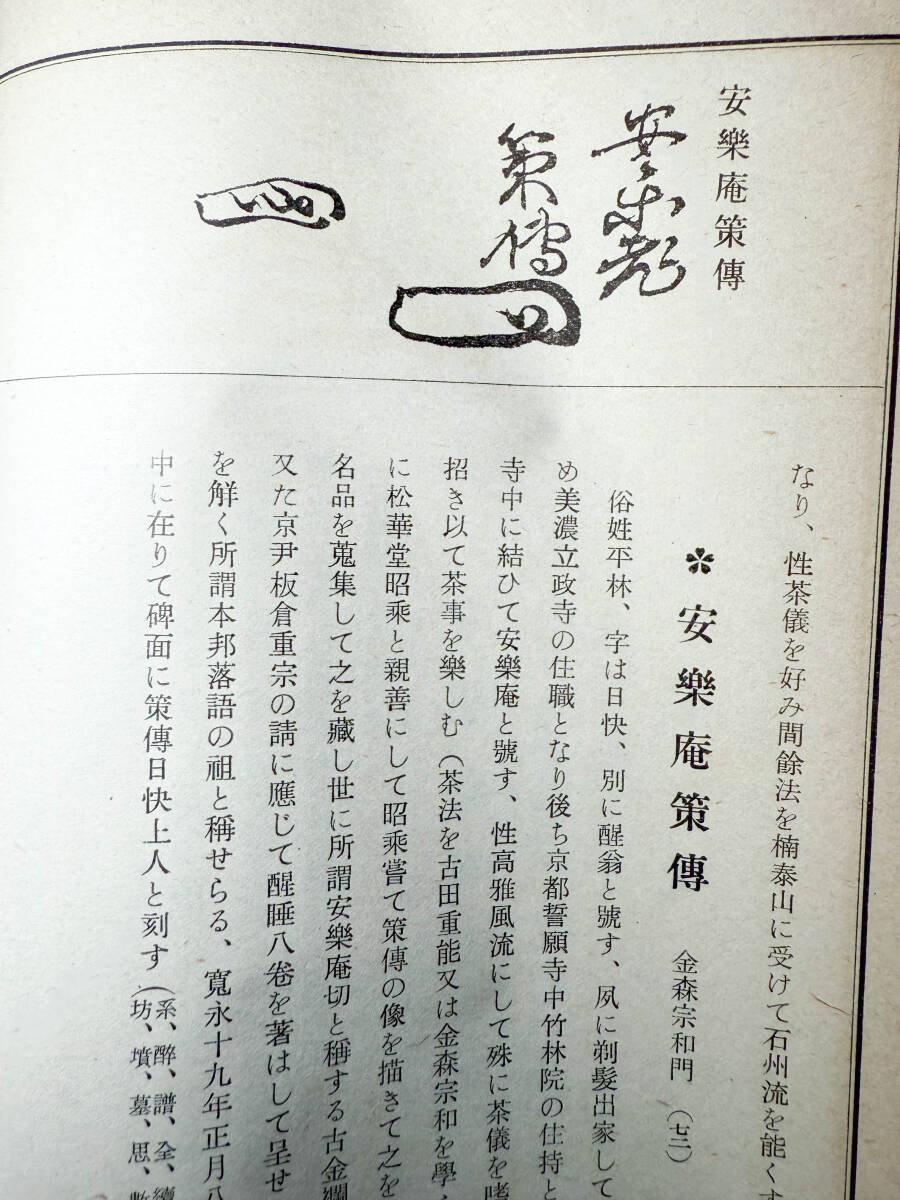 安樂庵策傳
安樂老
策傳
なり、性茶儀を好み間餘法を楠泰山に受けて石州流を能くす
安樂庵策傳 金森宗和門 (七二)
俗姓平林、字は日快、別に醒翁と號す、夙に剃髮出家して
め美濃立政寺の住職となり後ち京都誓願寺中竹林院の住持と
寺中に結ひて安樂庵と號す、性高雅風流にして殊に茶儀を嗜
招き以て茶事を樂しむ(茶法を古田重能又は金森宗和を學く
に松華堂昭乘と親善にして昭乘嘗て策傳の像を描きて之を
名品を蒐集して之を藏し世に所謂安樂庵切と稱する古金襴
又た京尹板倉重宗の請に應じて醒睡八卷を著はして呈せ
を解く所謂本邦落語の祖と稱せらる、寬永十九年正月八
中に在りて碑面に策傳日快上人と刻す(系、醉、譜、全、續
坊、墳、墓、思、數